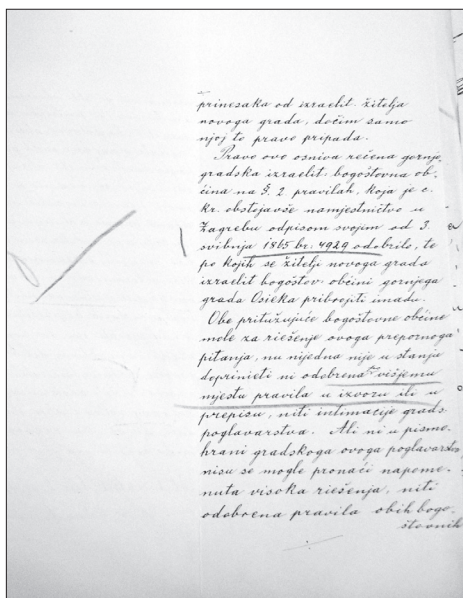 prinesaka od izraelit. žitelja
novoga grada, dočim samo
njoj to pravo pripada.
Pravo ovo osniva rečena gornje
gradska izraelit. bogoštovna ob-
ćina na §. 2 pravilah, koja je c.
kr. obstojavše namjestničtvo u
Zagrebu odpisom svojim od 3.
svibnja 1865 br. 4929 odobrilo, te
po kojih se žitelji novoga grada
izraelit bogoštov. občini gornjega
grada Osieka pribrojiti imadu.
Obe pritužujuće bogoštovne občine
mole za riešenje ovoga prepornoga
pitanja, nu nijedna nije u stanju
doprinieti ni odobrena višjemu
mjestu pravila u izvoru ili u
prepisu, niti intimacije grads.
poglavarstva. Ali ni u pisme-
hrani gradskoga ovoga poglavarstva
nisu se mogle pronaći napome-
nuta visoka riešenja, niti
odobrena pravila obih bogo-
štovnih